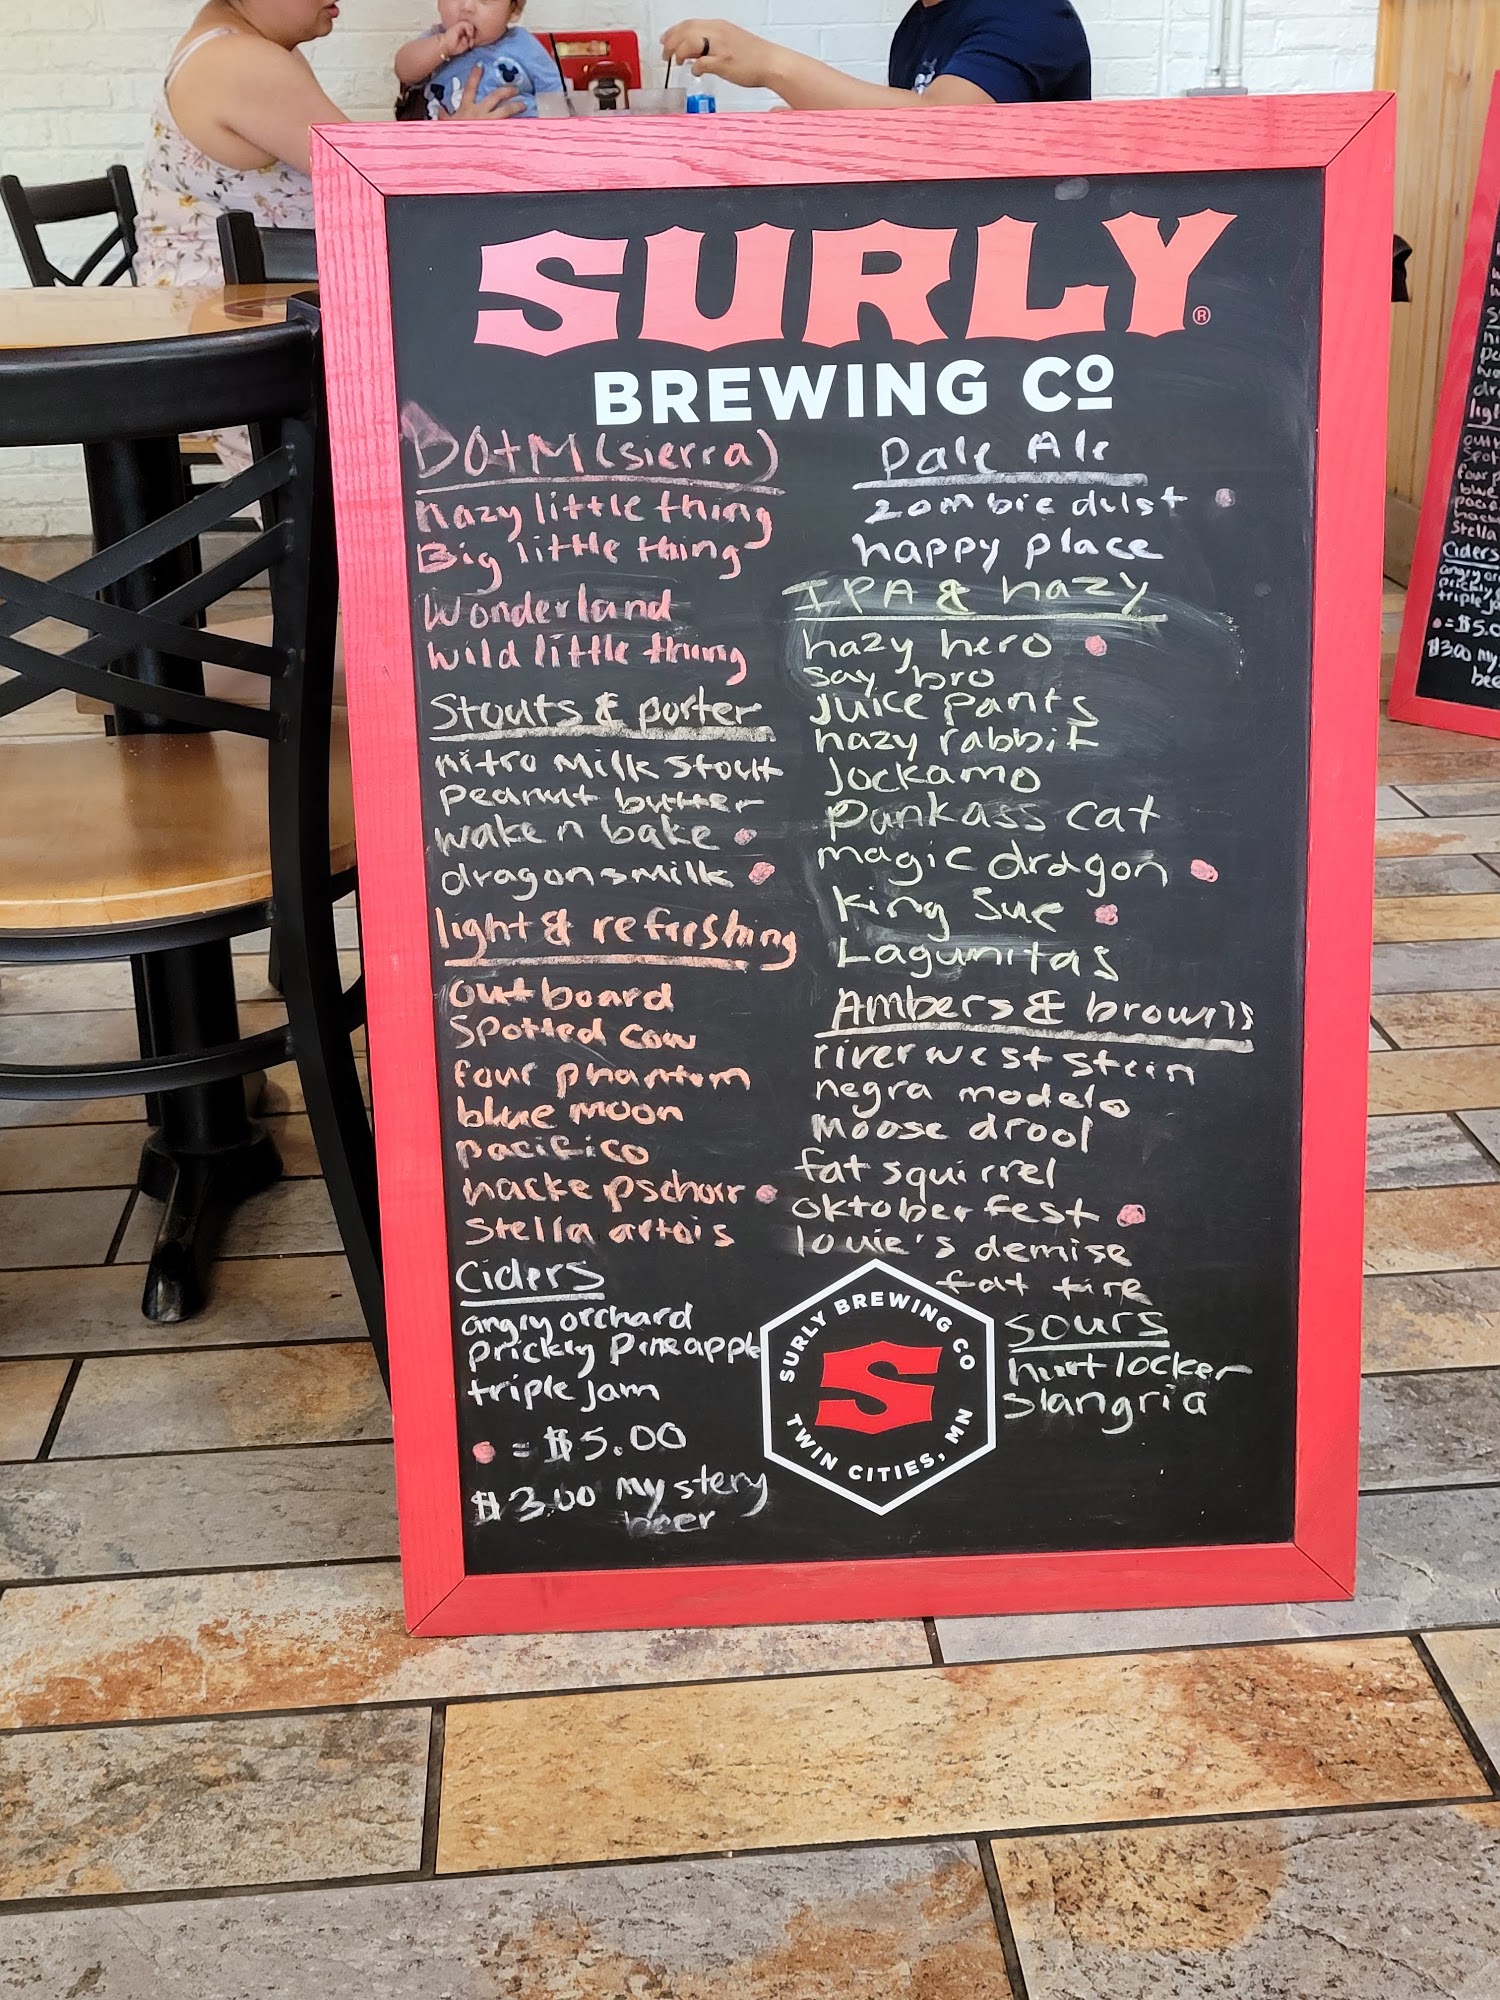 SURLY®
BREWING Cº
BOtM (sierra)
hazy little thing
Big little thing
Wonderland
wild little thing
Stouts & porter
nitro milk stout
peanut butter
wake n bake
dragonsmilk
light & refreshing
outboard
Spotted cow
four phantom
blue moon
pacifico
hacke pschorr
stella artois
Ciders
angry orchard
prickly pineapple
triple jam
= $5.00
$3.00 mystery
beer
Pale Ale
zombie dust
happy place
IPA & hazy
hazy hero
say bro
juice pants
hazy rabbit
Jockamo
Punkass cat
magic dragon
king sue
Lagunitas
Ambers & browns
riverwest stein
negra modelo
moose drool
fat squirrel
oktoberfest
louie's demise
fat tire
sours
hurt locker
slangria
SURLY BREWING CO
S
TWIN CITIES, MN
Stella
Ciders
= $5.0
$3.00 my
bee